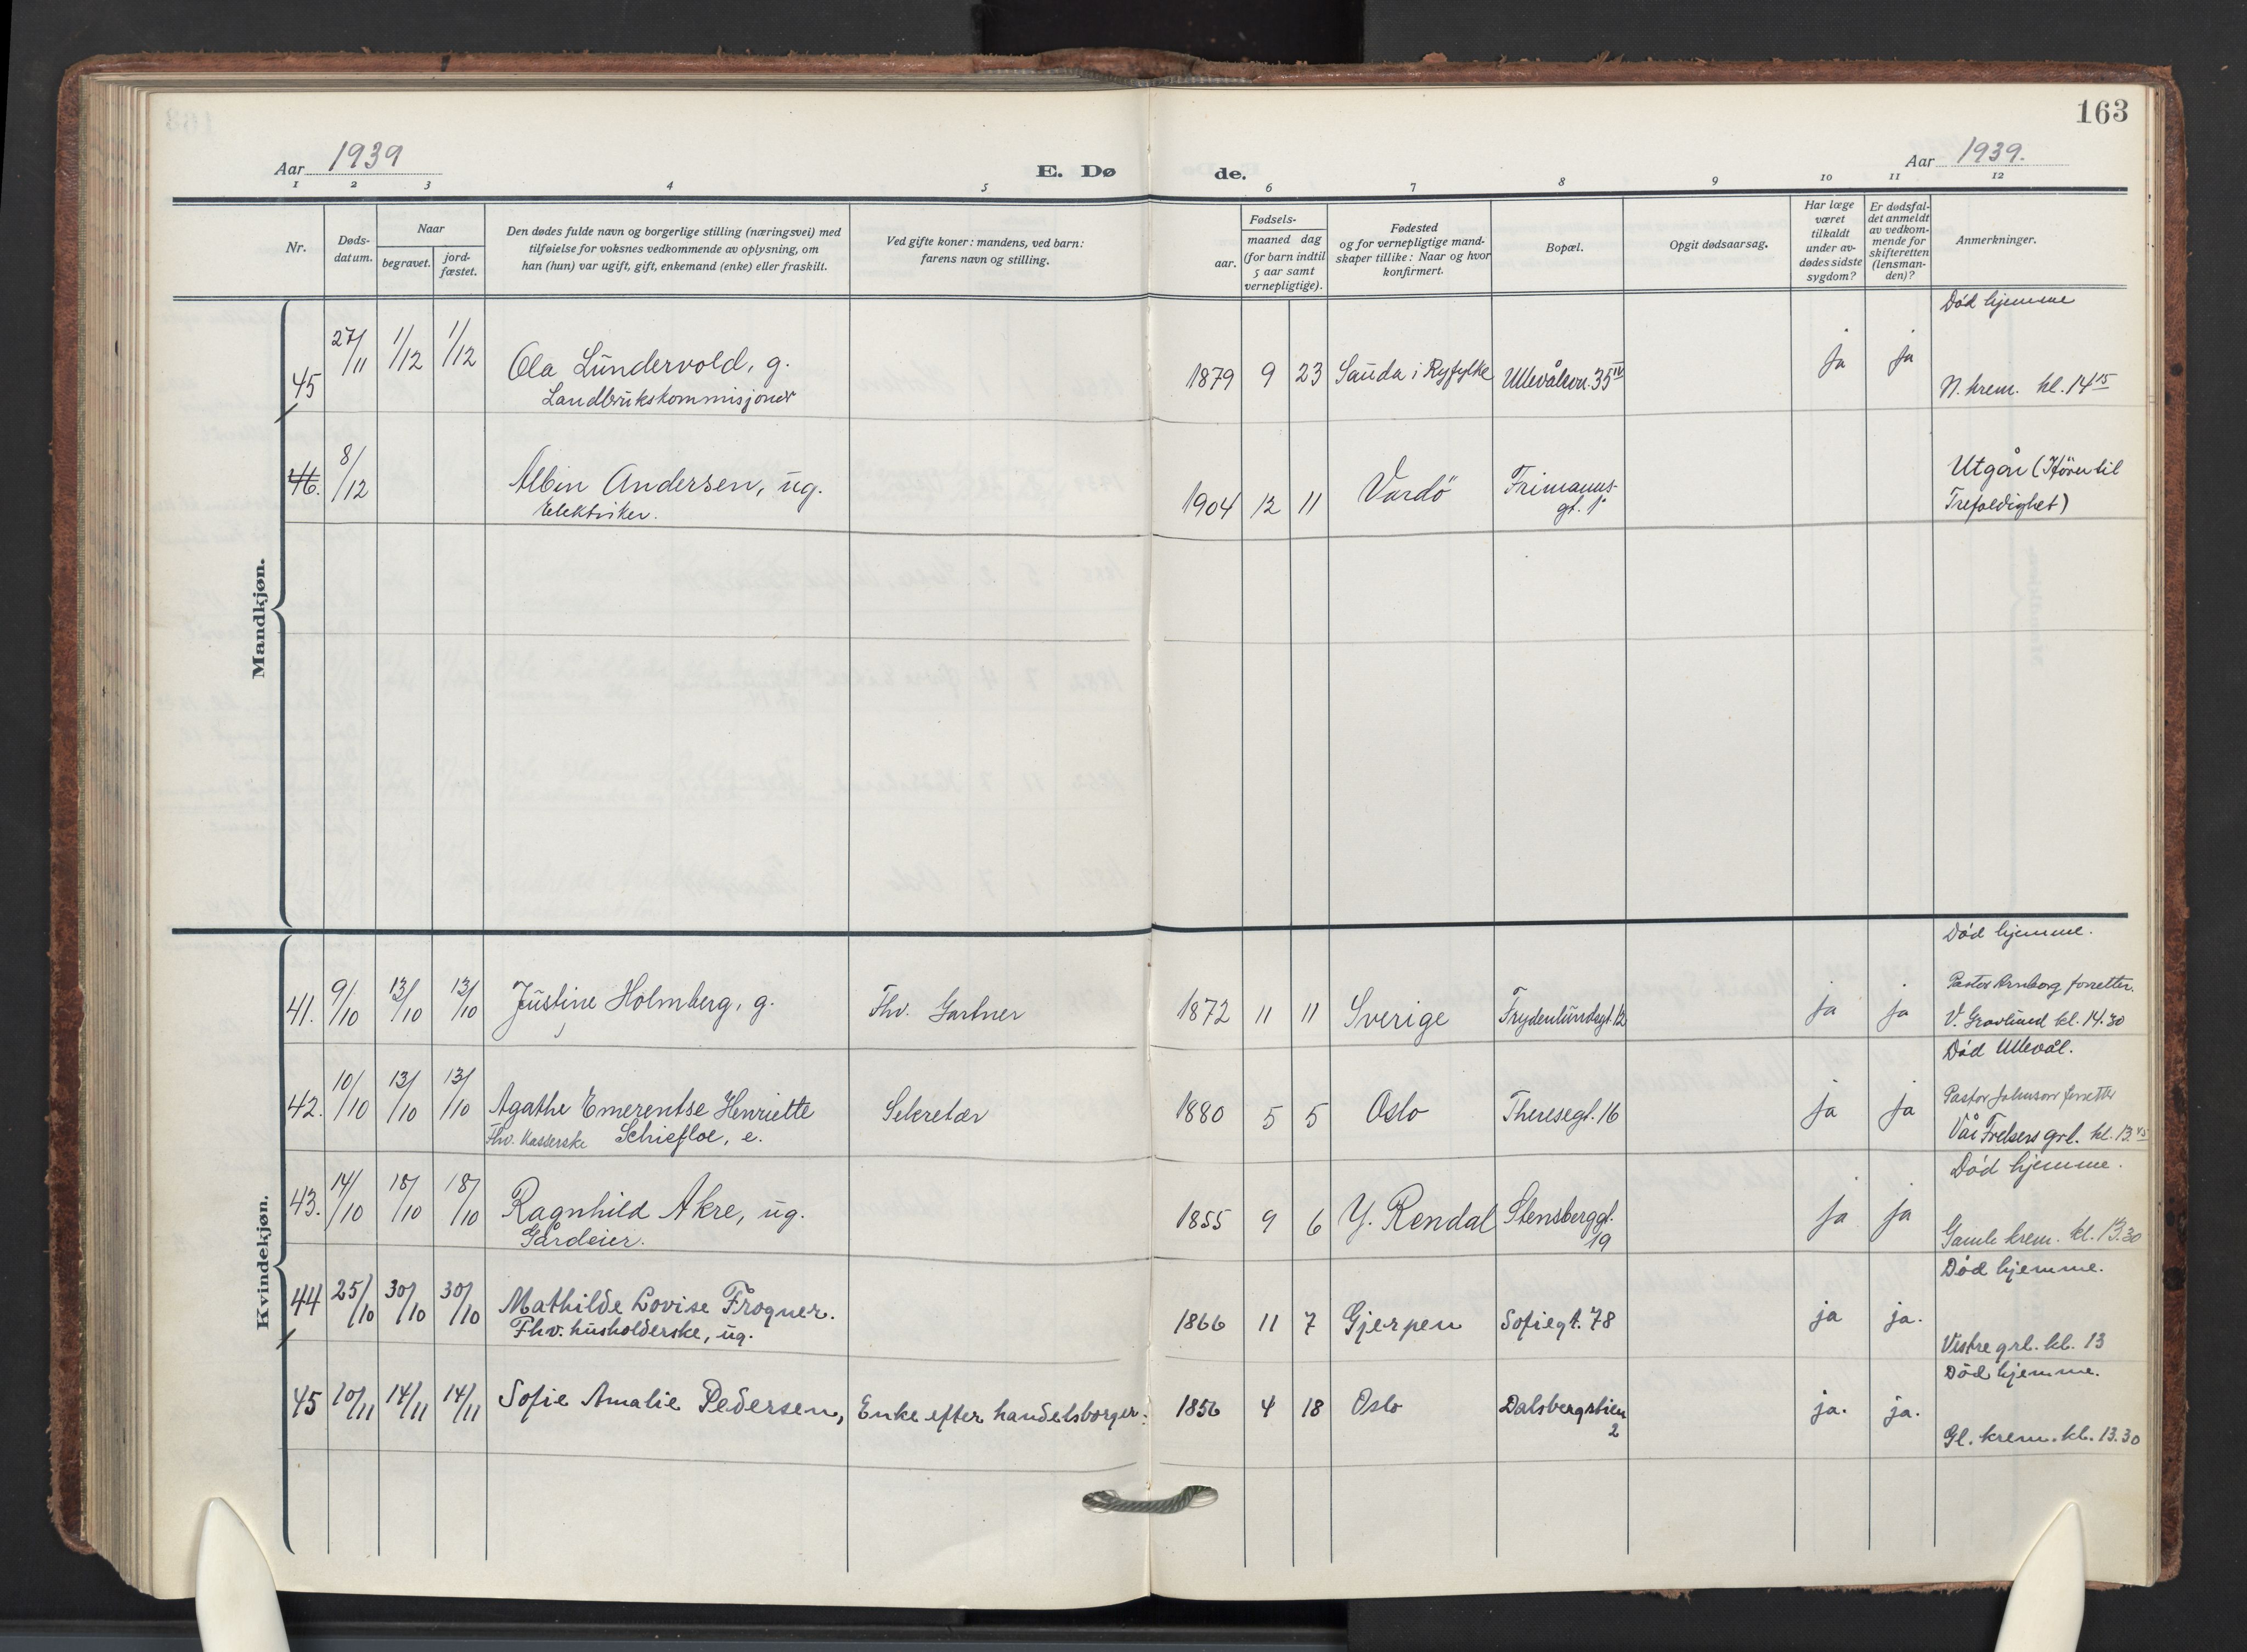 163
Aar 1939
E. Dø
de.
Aar 1939.
1 2 3 4 5 6 7 8 9 10 11 12
Nr.
Døds-
datum.
Naar
begravet.
jord-
fæstet.
Den dødes fulde navn og borgerlige stilling (næringsvei) med
tilføielse for voksnes vedkommende av oplysning, om
han (hun) var ugift, gift, enkemand (enke) eller fraskilt.
Ved gifte koner: mandens, ved barn:
farens navn og stilling.
Fødsels-
aar.
maaned dag
(for barn indtil
5 aar samt
vernepligtige).
Fødested
og for vernepligtige mand-
skaper tillike: Naar og hvor
konfirmert.
Bopæl.
Opgit dødsaarsag.
Har læge
været
tilkaldt
under av-
dødes sidste
sygdom?
Er dødsfal-
det anmeldt
av vedkom-
mende for
skifteretten
(lensman-
den)?
Anmerkninger.
Mandkjøn.
Død hjemme
45 27/11 1/12 1/12 Ola Lundervold, g. 1879 9 23 Sauda i Ryfylke Ullevålsvn. 35 IV ja ja
Landbrukskommisjonær
N. krem. kl. 14 15
46. 8/12 Albin Andersen, ug. 1904 12 11 Vardö Frimanns- Utgår (Hører til
Elektriker. gt. Trefoldighet)
Kvindekjøn.
Død hjemme.
Pastor Arnborg forretter.
41. 9/10 13/10 13/10 Justine Holmberg, g. Fhv. Gartner 1872 11 11 Sverige Frydenlundsgt. 12 ja ja V. Gravlund kl. 14.30
Død Ullevål.
Pastor Johnson forretter
42. 10/10 13/10 13/10 Agathe Emerentse Henriette Sekretær 1880 5 5 Oslo Theresegt. 16 ja ja
Fhv. Kasserske Schiefloe, e. Vår Frelsers grl. kl. 13.45
Død hjemme.
43. 14/10 18/10 18/10 Ragnhild Akre, ug. 1855 9 6 Y. Rendal Stensberggt. ja ja
Gårdeier. 19 Gamle krem. kl. 13.30
Død hjemme.
44 25/10 30/10 30/10 Mathilde Lovise Frogner. 1866 11 7 Gjerpen Sofiegt. 78 ja ja.
Fhv. husholderske, ug. Vestre grl. kl. 13
Død hjemme.
45 10/11 14/11 14/11 Sofie Amalie Pedersen, Enke efter handelsborger. 1856 4 18 Oslo Dalsbergstien ja. ja.
2 Gl. krem. kl. 13.30